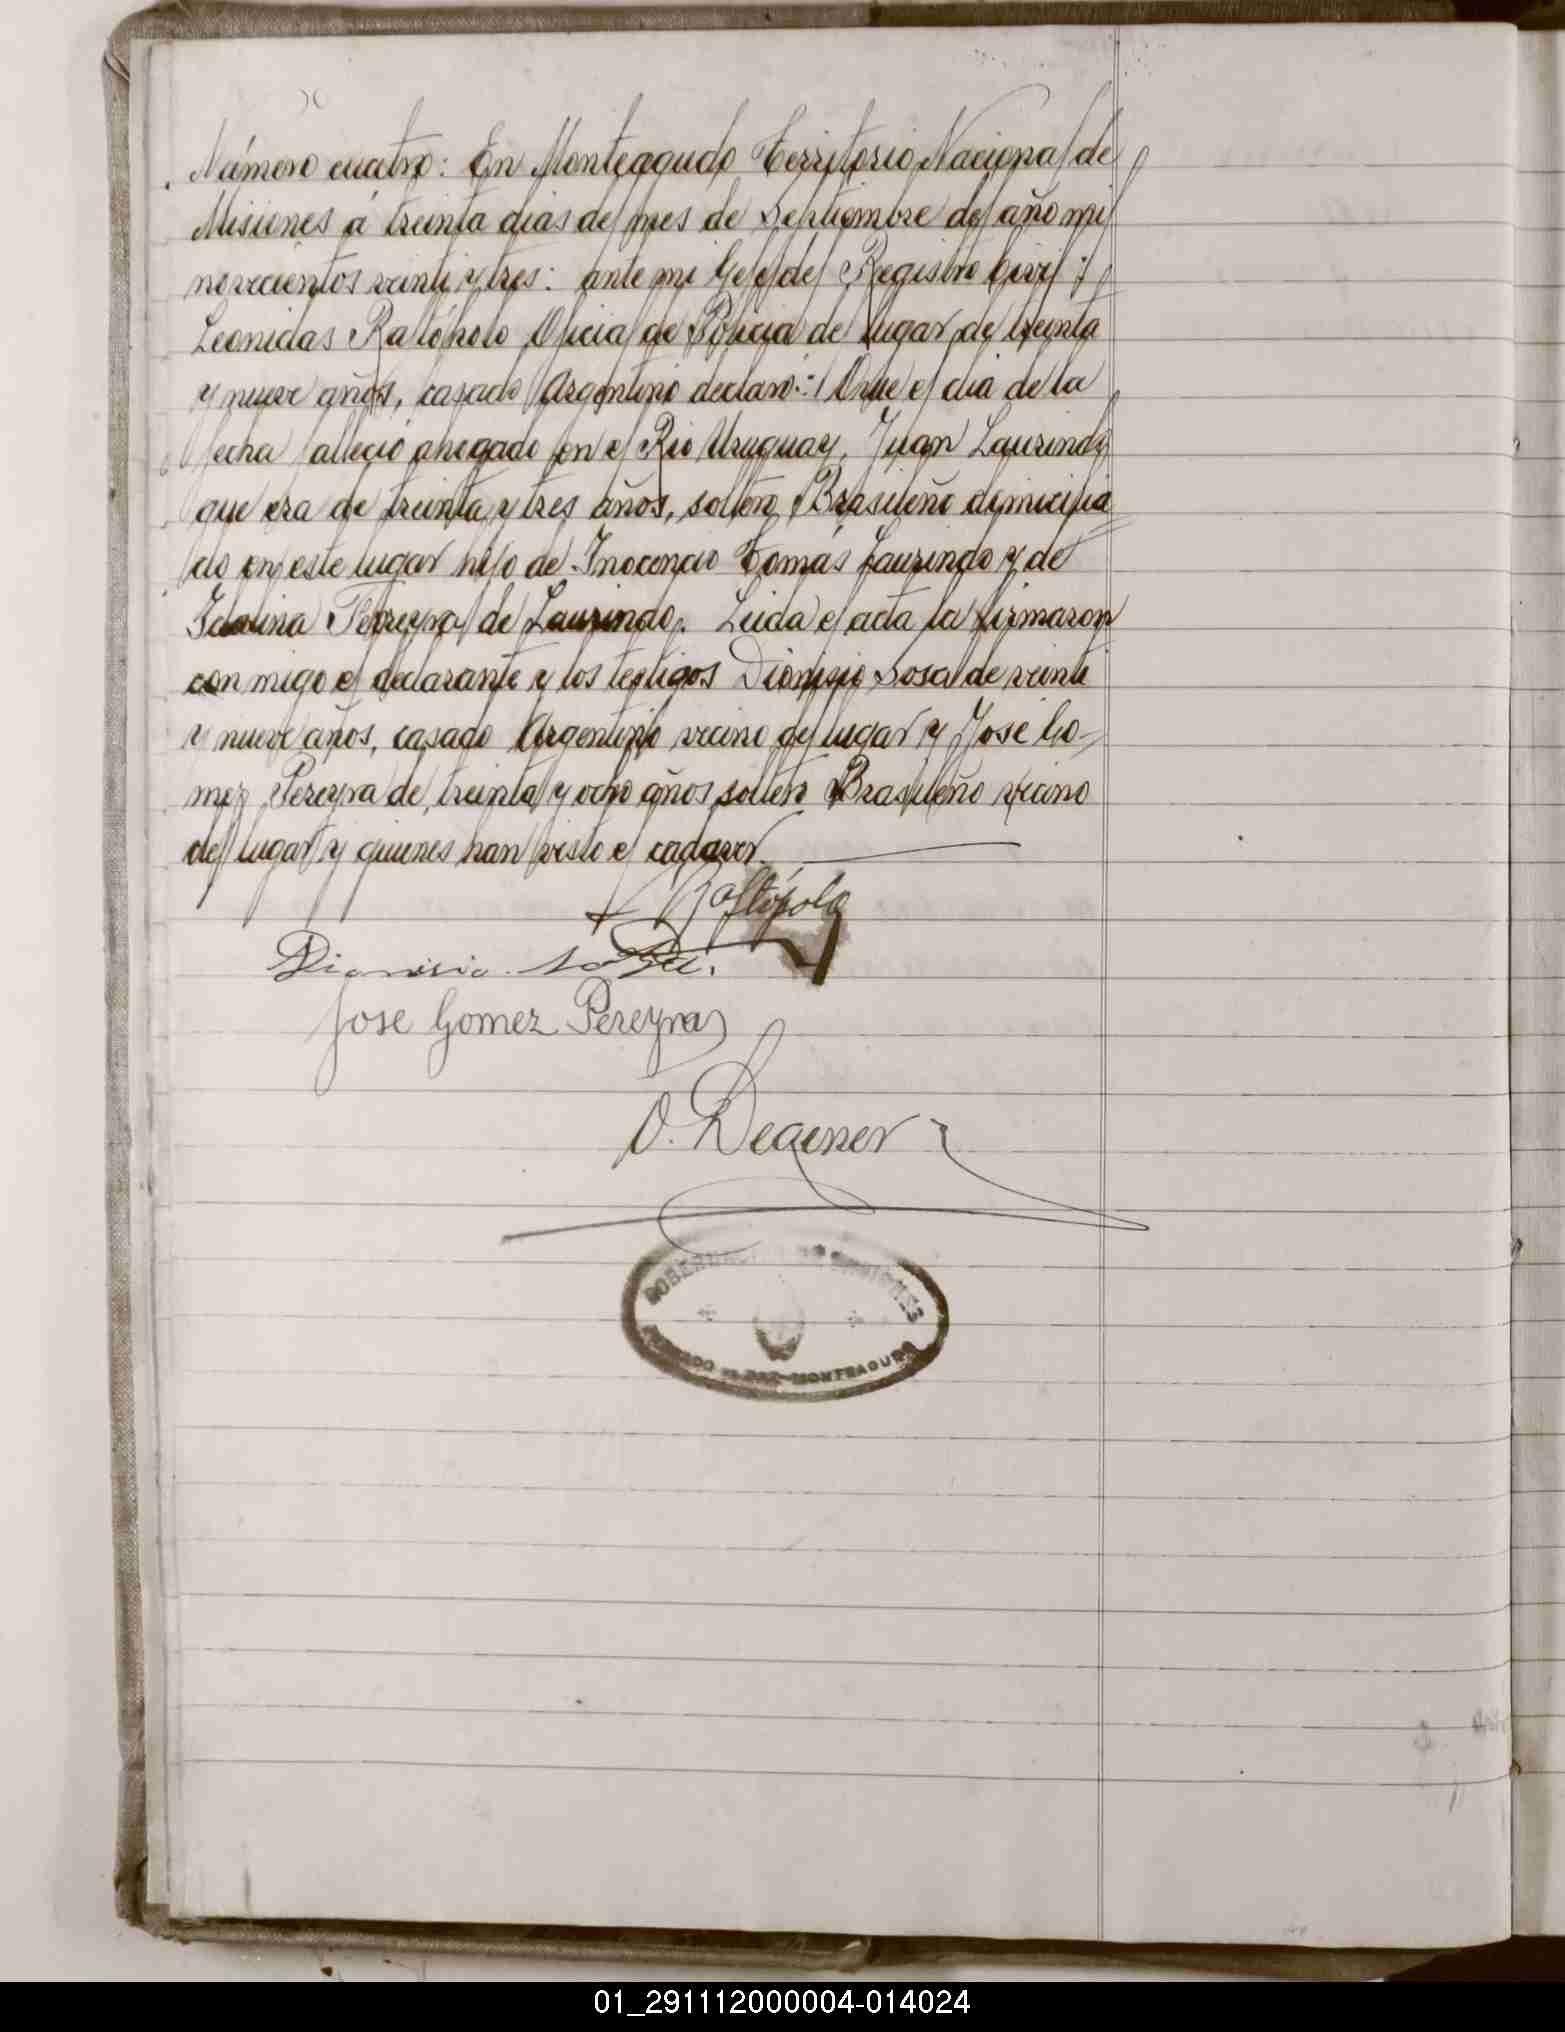 Número cuatro: En Monteagudo Territorio Nacional de
Misiones á treinta dias del mes de Septiembre del año mil
novecientos veinti y tres: ante mi Gefe del Registro Civil;
Leonidas Oficial de Policia del lugar, de treinta
y nueve años, casado Argentino declaró: Que el dia de la
fecha falleció ahogado en el Rio Uruguay, Juan Laurindo
que era de treinta y tres años, soltero, Brasileño domicilia
do en este lugar hijo de Inocencio Tomás Laurindo y de
Pereyra de Laurindo. Leida el acta la firmaron
conmigo el declarante y los testigos Dionisio Sosa de veinti
y nueve años, casado Argentino vecino del lugar y José Go-
mez Pereyra de treinta y ocho años soltero Brasileño vecino
del lugar y quienes han visto el cadaver.
Dionisio Sosa.
Jose Gomez Pereyra
O. Degener
GOBERNACION DE MISIONES
JUZGADO DE PAZ-MONTEAGUDO
01_291112000004-014024